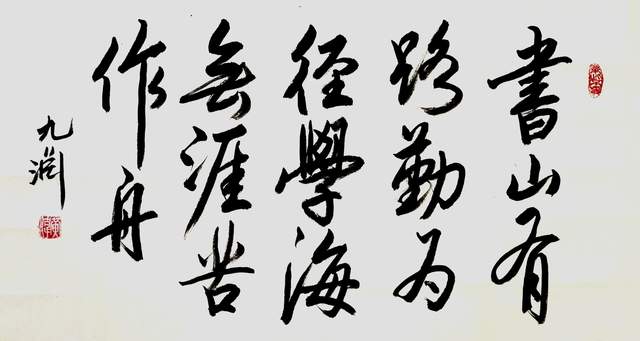 書山有
路勤為
徑學海
無涯苦
作舟
九澗